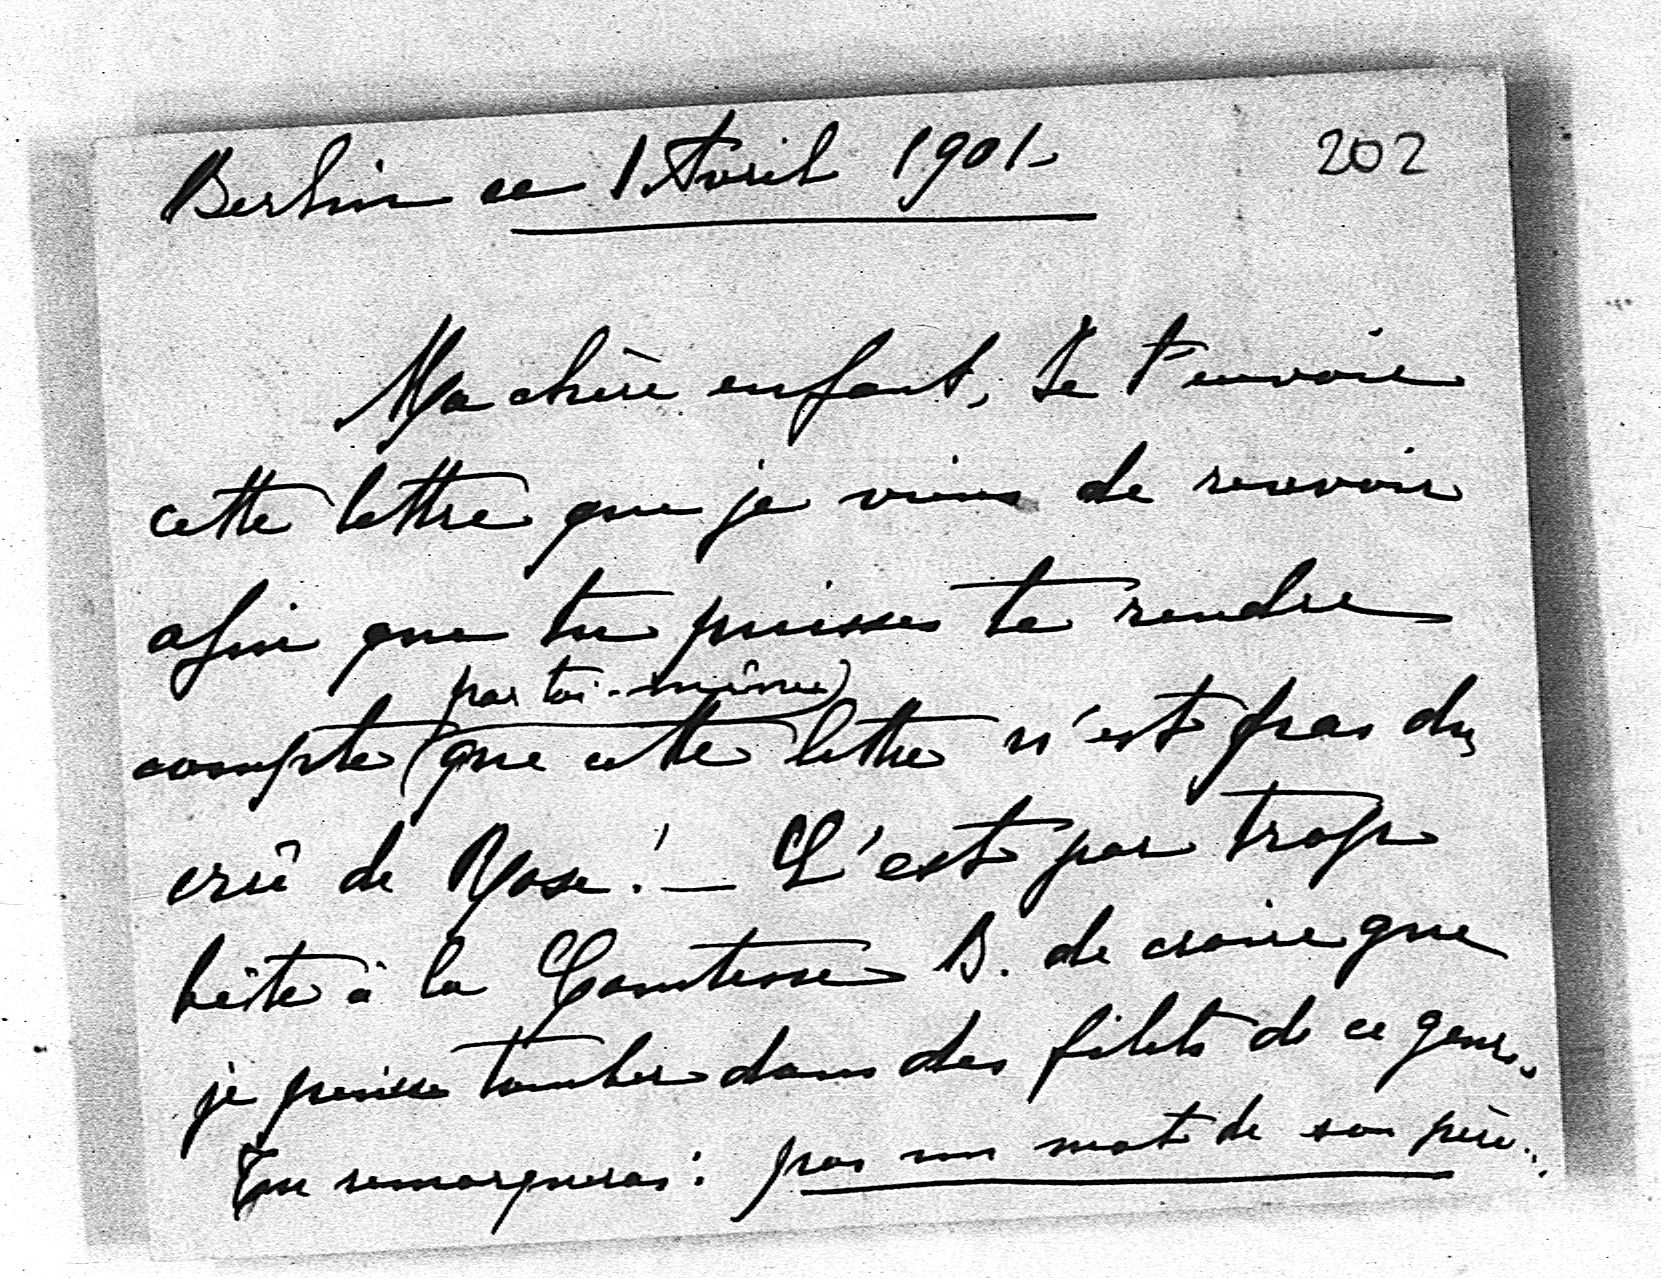 Berlin ce 1 Avril 1901- 202
Ma chère enfant, Je t'envoie
cette lettre que je viens de recevoir
afin que tu puisses te rendre
par toi-même
compte que cette lettre n'est pas du
crû de Rose! — C'est par trop
bête à la Comtesse B. de croire que
je puisse tomber dans des filets de ce genre.
Tu remarqueras: pas un mot de son père...